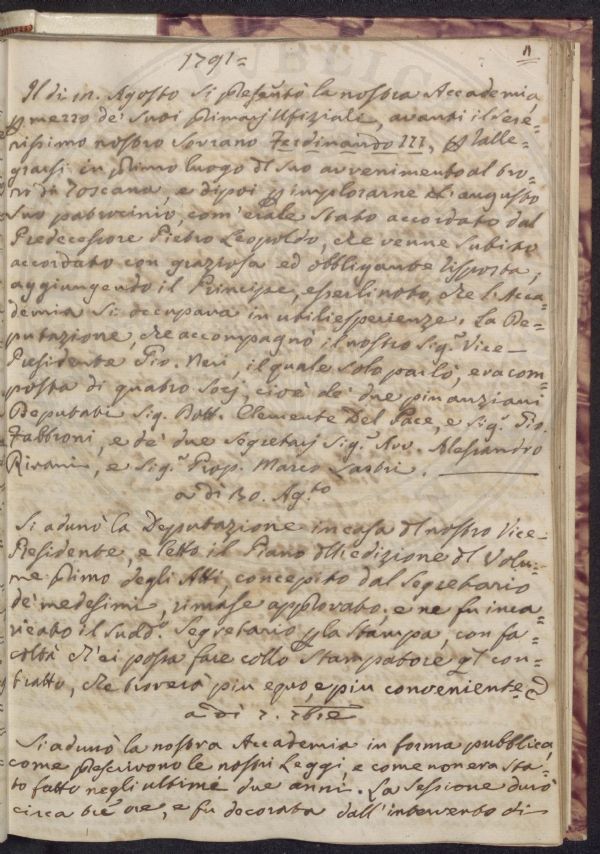 11
1791=
Il di 10. Agosto si presentò la nostra Accademia
p mezzo de' suoi primarj Ufiziali, avanti il Sere=
nissimo nostro Sovrano Ferdinando III, p ralle=
grarsi in primo luogo dl suo avvenimento al tro=
no di Toscana e dipoi p implorarne l'augusto
suo patrocinio, com'erale stato accordato dal
Predecessore Pietro Leopoldo, che venne subito
accordato con graziosa ed obbligante risposta,
aggiungendo il Principe, esserli noto, che l'Acca=
demia si occupava in utili esperienze. La De=
putazione, che accompagnò il nostro Sig.r Vice=
Presidente Gio. Neri, il quale solo parlò, era com=
posta di quatro Socj, cioè de' due più anziani
Deputati Sig. Dott. Clemente Del Pace, e Sig.r Gio.
Fabbroni, e de' due Segretarj Sig.r Avv. Alessandro
Rivani, e Sig.r Prop. Marco Lastri.
a di 30. Ag.to
Si adunò la Deputazione in casa dl nostro Vice=
Presidente, e letto il Piano dll'edizione dl Volu=
me primo degli Atti, concepito dal Segretario
de' medesimi, rimase approvato; e ne fu inca=
ricato il sudd.o Segretario p la stampa, con fa=
coltà ch'ei possa fare collo Stampatore ql con=
tratto, che troverà più equo, e più conveniente.
a di 7. 7bre
Si adunò la nostra Accademia in forma pubblica,
come prescrivono le nostri Leggi, e come non era sta=
to fatto negli ultimi due anni. La Sessione durò
circa tre ore, e fu decorata dall'intervento di